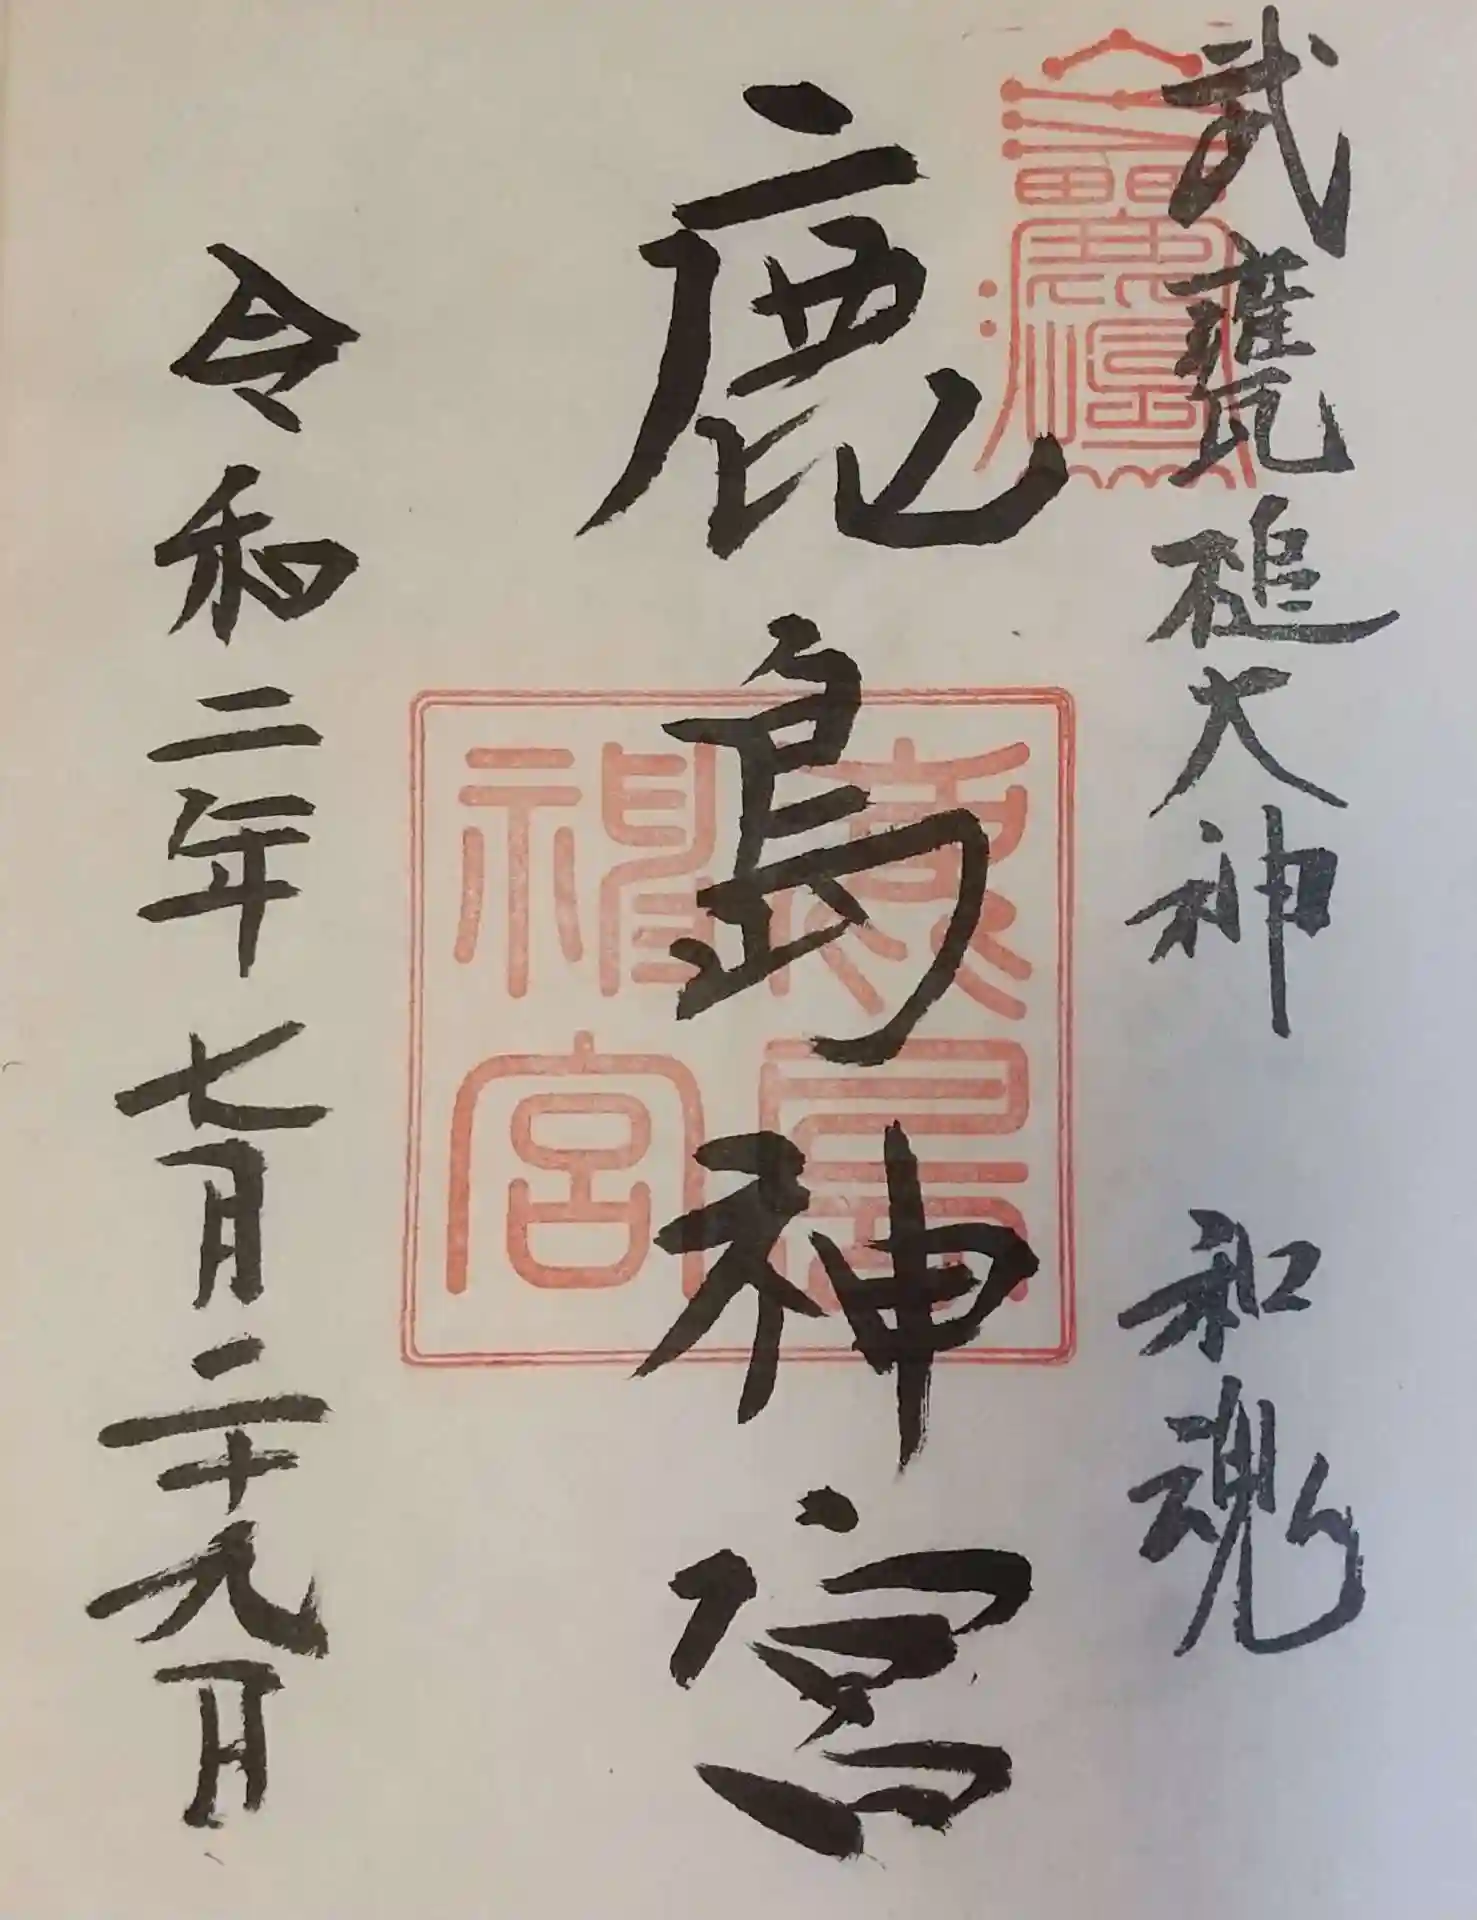 武甕槌大神 和魂
鹿島神宮
鹿島神宮
令和二年七月二十九日